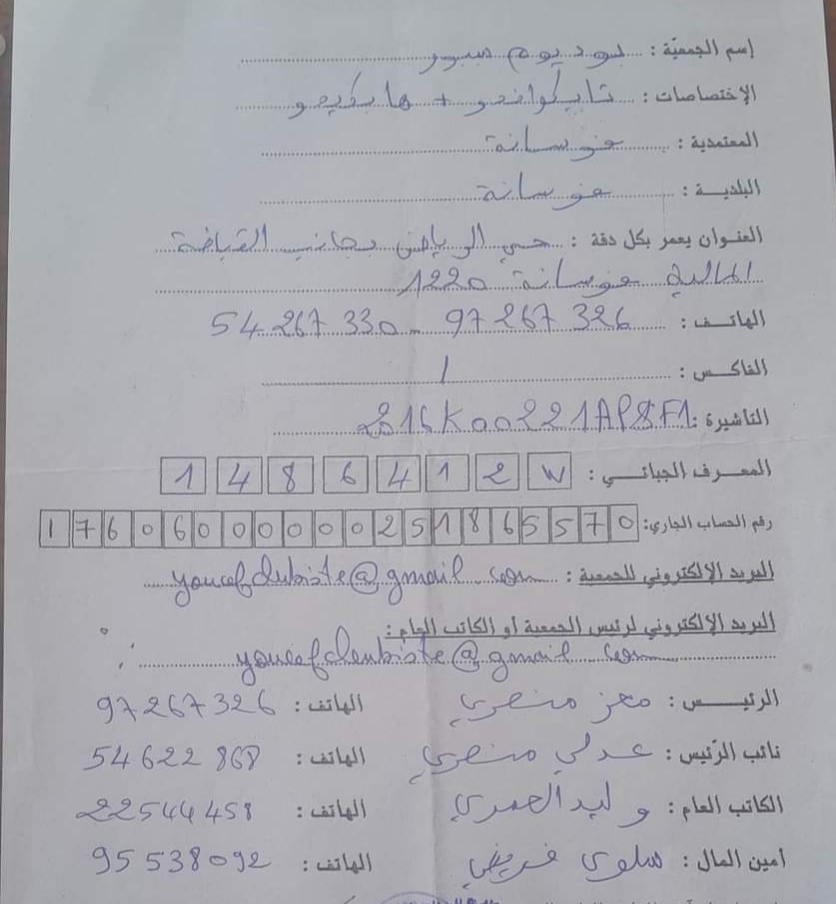 إسم الجمعيّة : بوديوم سبور
الإختصاصات : تايكواندو + هابكيدو
المعتمدية : فوسانة
البلديـة : فوسانة
العنوان يعمر بكل دقة : حي الرياض بجانب القباضة
المالية فوسانة 1220
الهاتـف : 97267326 - 54267330
الفاكـس : /
التاشيرة : 2016K00221APSF1
المعـرف الجبائـي : 1486412W
رقم الحساب الجاري: 17606000000251865570
البريد الإلكتروني للجمعية : youcefclubiste@gmail.com
البريد الإلكتروني لرئيس الجمعية أو الكاتب العام :
youcefclubiste@gmail.com
الرئيـس : معز منصري الهاتف : 97267326
نائب الرّئيس : عدلي منصري الهاتف : 54622868
الكاتب العام : وليد العمري الهاتف : 22544458
أمين المال : سلوى فريضي الهاتف : 95538092